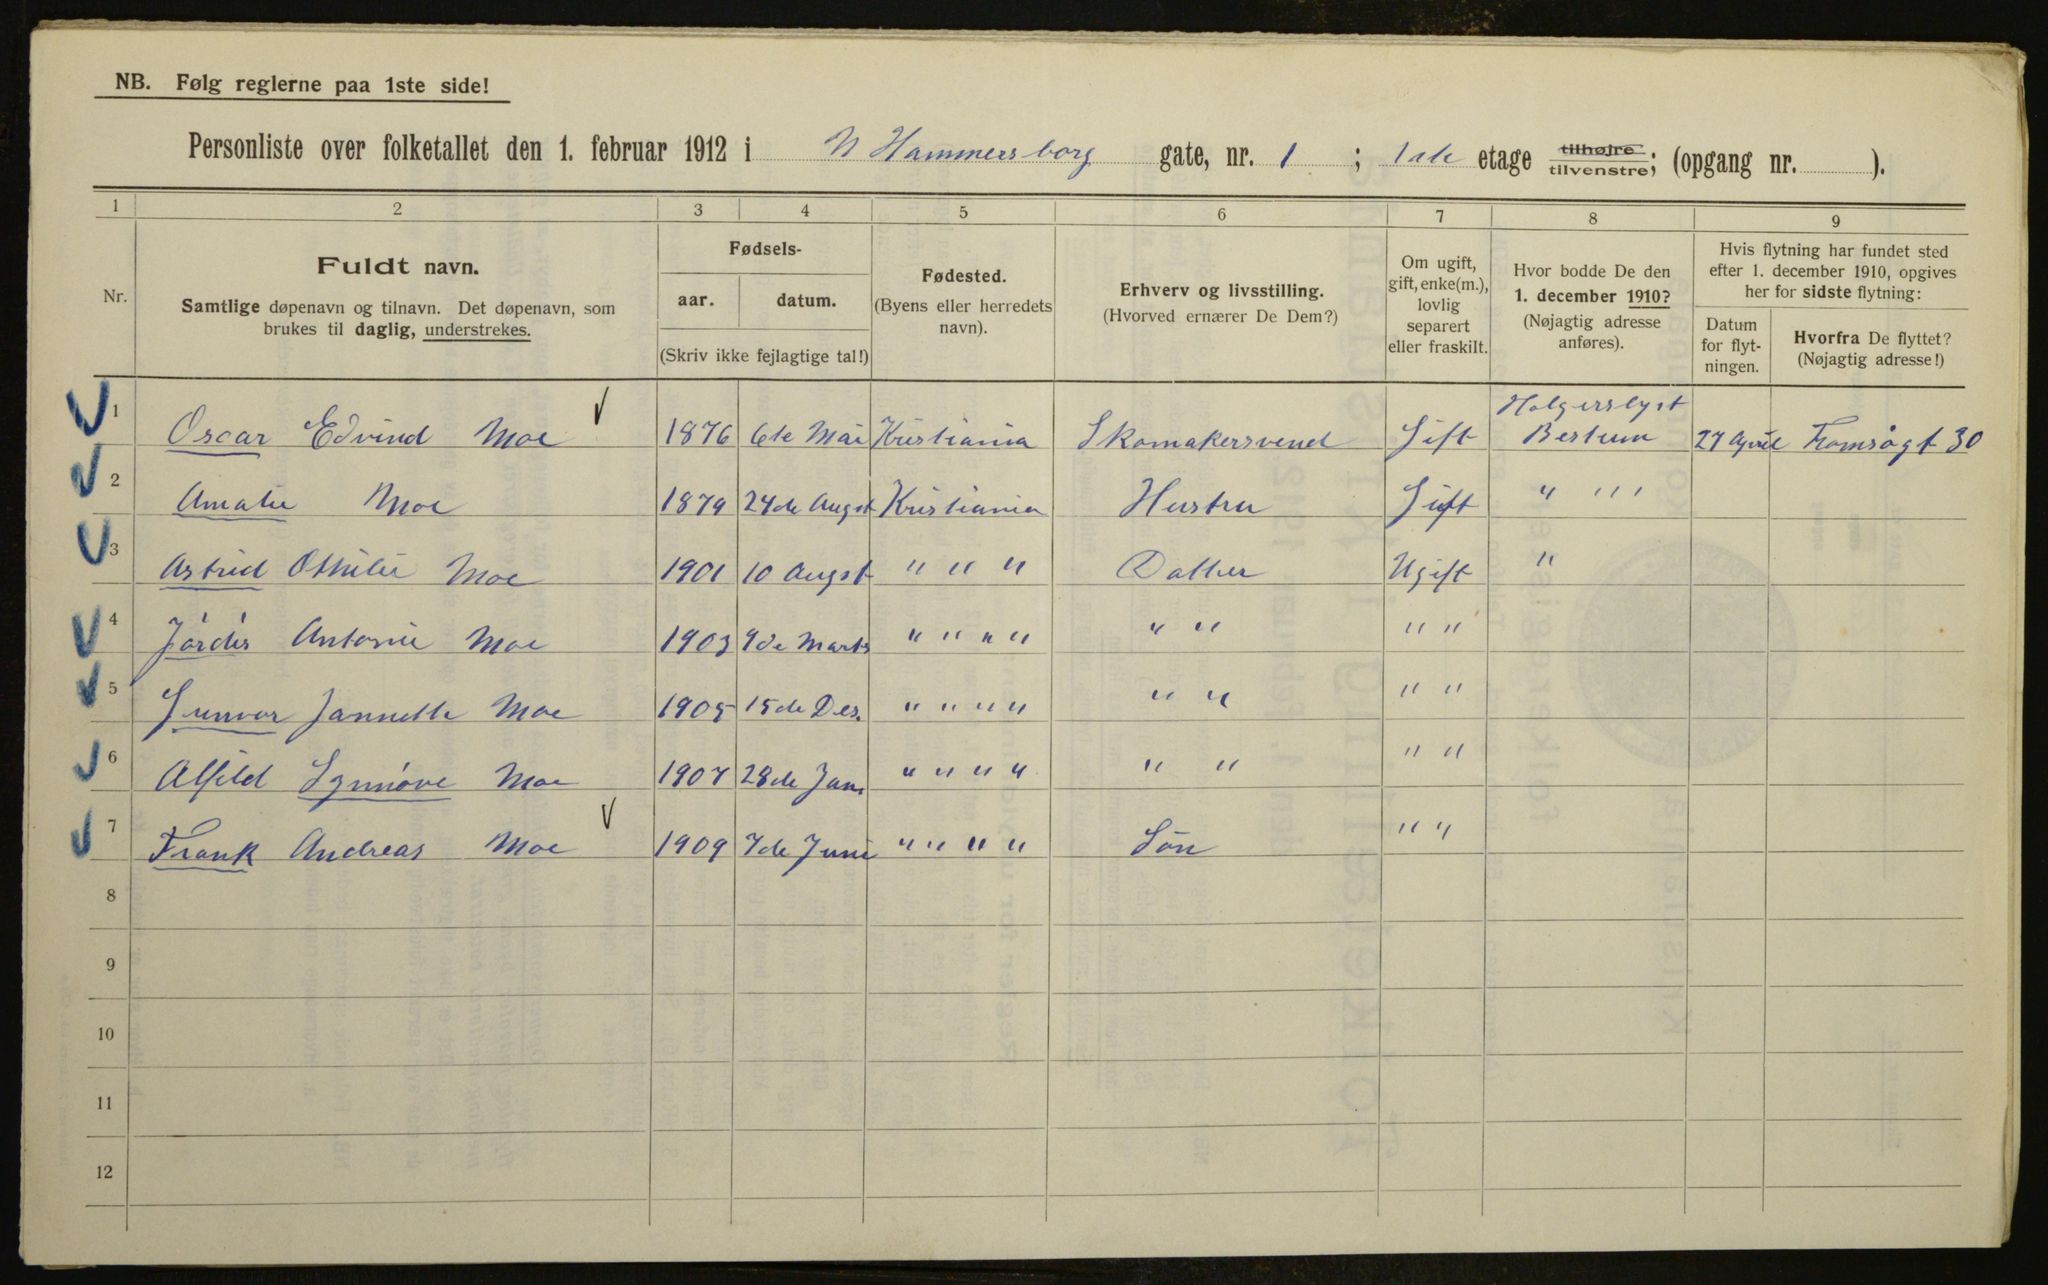 NB. Følg reglerne paa 1ste side!
Personliste over folketallet den 1. februar 1912 i N Hammersborg gate, nr. 1 ; 1ste etage tilhøjre tilvenstre; (opgang nr. ).
1 2 3 4 5 6 7 8 9
Nr.
Fuldt navn.
Samtlige døpenavn og tilnavn. Det døpenavn, som
brukes til daglig, understrekes.
Fødsels-
aar. datum.
(Skriv ikke fejlagtige tal!)
Fødested.
(Byens eller herredets
navn).
Erhverv og livsstilling.
(Hvorved ernærer De Dem?)
Om ugift,
gift, enke(m.),
lovlig
separert
eller fraskilt.
Hvor bodde De den
1. december 1910?
(Nøjagtig adresse
anføres).
Hvis flytning har fundet sted
efter 1. december 1910, opgives
her for sidste flytning:
Datum
for flyt-
ningen.
Hvorfra De flyttet?
(Nøjagtig adresse!)
1 Oscar Edvind Moe 1876 6te Mai Kristiania Skomakersvend Gift Holgerslyst
Bestum 27 April Tromsøgt 30
2 Amalie Moe 1879 24de Augst Kristiania Hustru Gift " " "
3 Astrid Othilie Moe 1901 10 Augst " " " Datter Ugift "
4 Jórdis Antonie Moe 1903 9de Marts " " " " " " " "
5 Gunvor Jannette Moe 1905 15de Des. " " " " " " " "
6 Alfild Synnöve Moe 1907 28de Jan. " " " " " " " "
7 Frank Andreas Moe 1909 7de Juni " " " " Sön " "
8
9
10
11
12